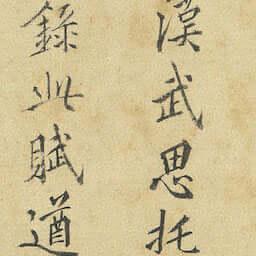 漢武思托
錄此賦遒